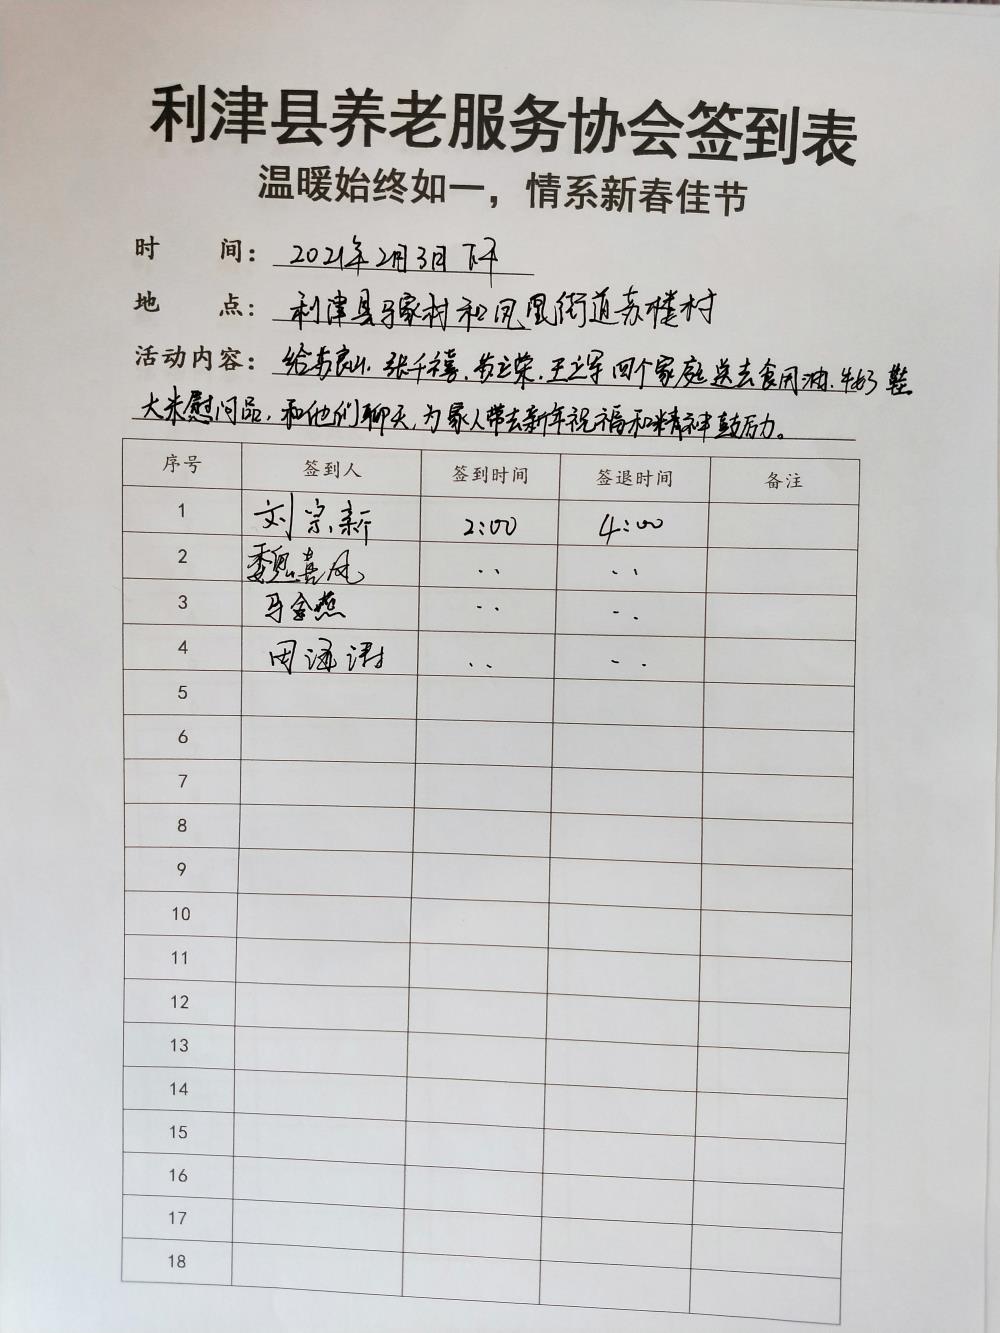 利津县养老服务协会签到表
温暖始终如一，情系新春佳节
时 间：2021年2月3日下午
地 点：利津县马家村和凤凰街道苏楼村
活动内容：给 张千禧、 荣、王 四个家庭送去食用油、牛奶、鞋
大米慰问品，和他们聊天，为家人带去新年祝福和精神鼓励。
序号 签到人 签到时间 签退时间 备注
1 刘宗新 2:00 4:00
2 魏喜凤 ·· ··
3 马金燕 ·· ··
4 周 ·· ··
5
6
7
8
9
10
11
12
13
14
15
16
17
18